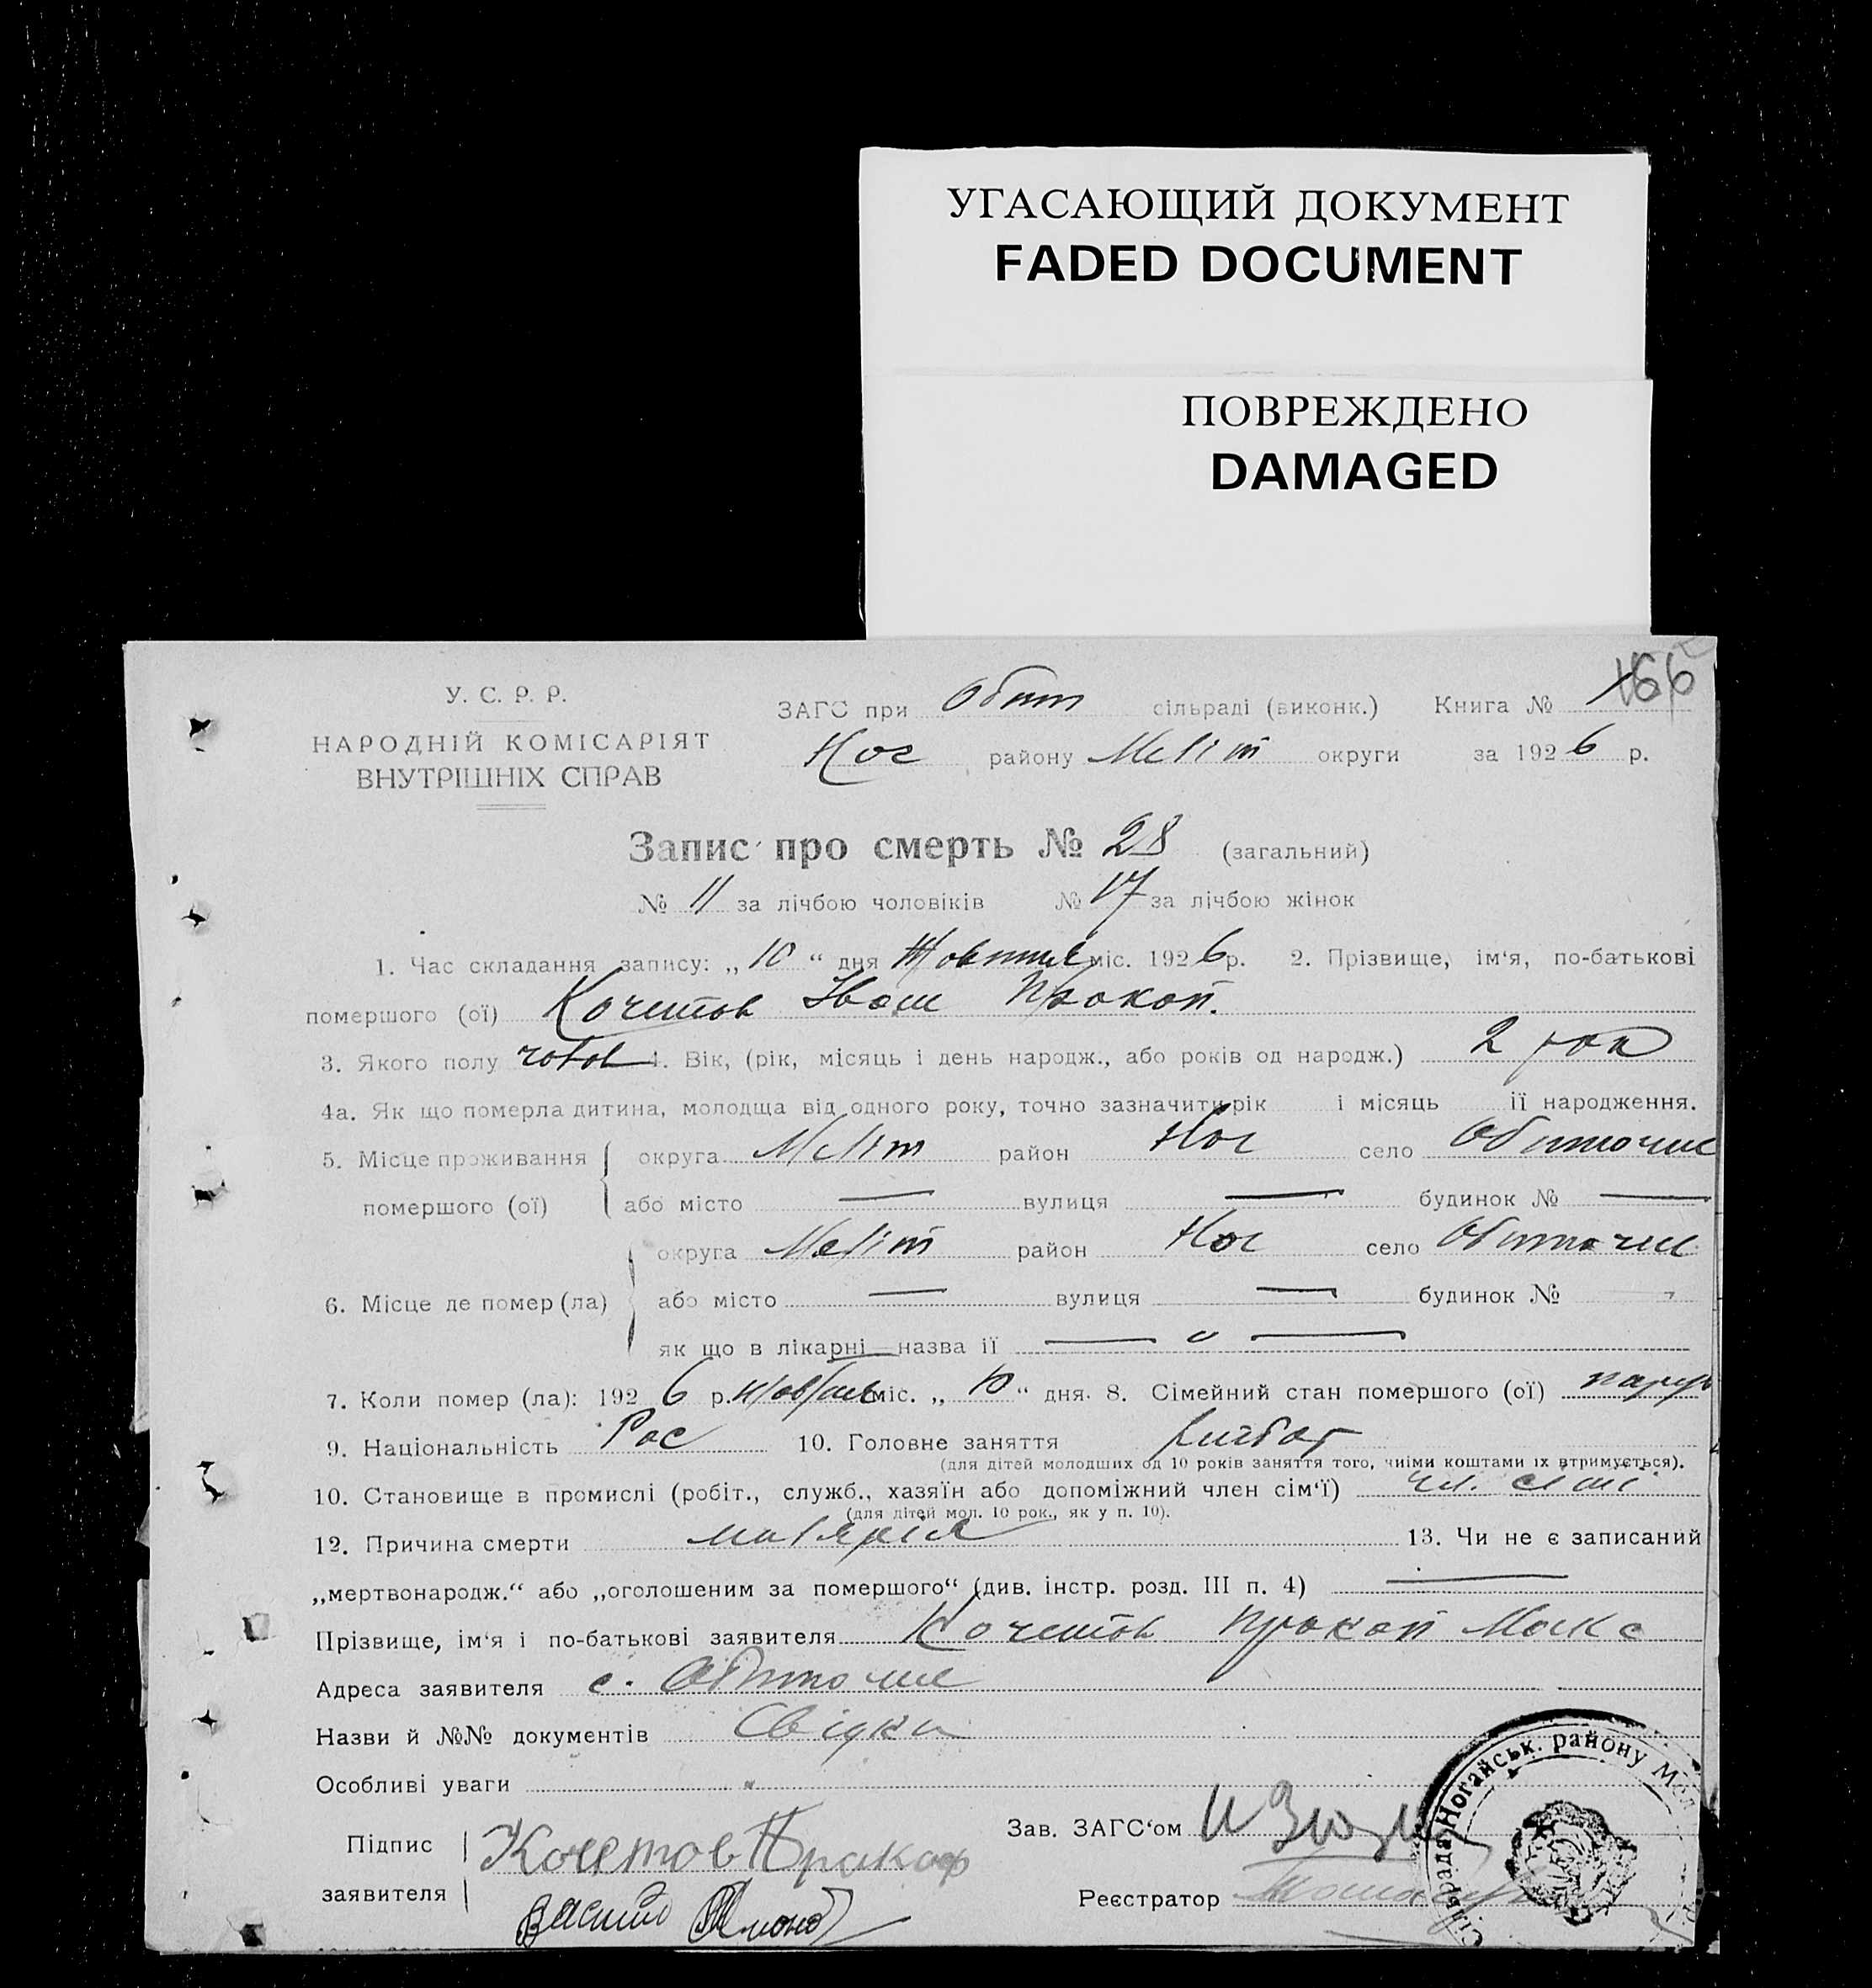 УГАСАЮЩИЙ ДОКУМЕНТ
FADED DOCUMENT
ПОВРЕЖДЕНО
DAMAGED
У. С. Р. Р.
НАРОДНІЙ КОМІСАРІЯТ
ВНУТРІШНІХ СПРАВ
ЗАГС при Обит сільраді (виконк.) Книга № 166
Ног району Меліт округи за 1926 р.
Запис про смерть № 28 (загальний)
№ 11 за лічбою чоловіків № 17 за лічбою жінок
1. Час складання запису: „ 10 “ дня Жовтня міс. 1926 р. 2. Прізвище, ім‘я, по-батькові
помершого (ої) Кочетов Іван Прокоп.
3. Якого полу чолов 4. Вік, (рік, місяць і день народж., або років од народж.) 2 рок
4а. Як що померла дитина, молодща від одного року, точно зазначити рік і місяць її народження.
5. Місце проживання округа Меліт район Ног село Обиточне
помершого (ої) або місто — вулиця — будинок № —
округа Меліт район Ног село Обиточне
6. Місце де помер (ла) або місто — вулиця — будинок №
як що в лікарні—назва її — „ —
7. Коли помер (ла): 1926 р. жовтня міс. „ 10 “ дня. 8. Сімейний стан помершого (ої)
9. Національність Рос 10. Головне заняття хлібор
(для дітей молодших од 10 років заняття того, чиїми коштами їх втримується).
10. Становище в промислі (робіт., служб., хазяїн або допоміжний член сім‘ї) чл. сімї
(для дітей мол. 10 рок., як у п. 10).
12. Причина смерти малярія 13. Чи не є записаний
„мертвонародж.“ або „оголошеним за помершого“ (див. інстр. розд. III п. 4) —
Прізвище, ім‘я і по-батькові заявителя Кочетов Прокоп Макс
Адреса заявителя с. Обиточне
Назви й №№ документів Свідки
Особливі уваги „
Підпис
заявителя
Кочетов Пракоф
Зав. ЗАГС‘ом
Реєстратор
Сільрада Ногайськ. району Мел